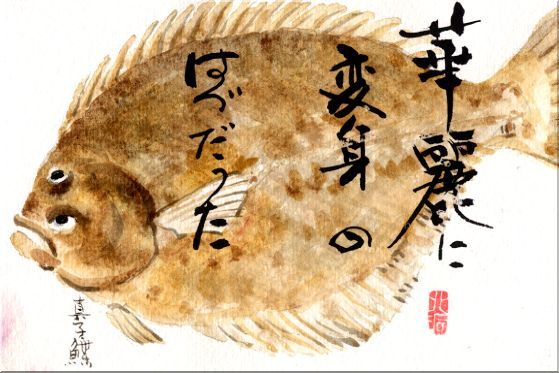 華麗に
変身の
はずだった
真子鰈